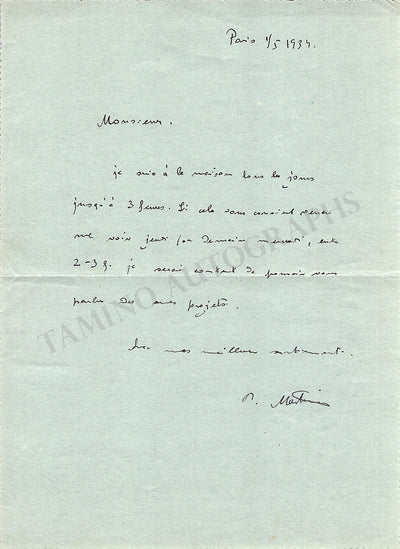 Paris 1/5 1934.
Monsieur.
je suis à la maison tous les jours
jusqu'à 3 heures. Si cela vous convient venez
me voir jeudi (ou demain mercredi, entre
2-3 h. je serai content de pouvoir vous
parler des mes projets.
Avec mes meilleurs sentiments.
B. Martinu
TAMINO AUTOGRAPHS